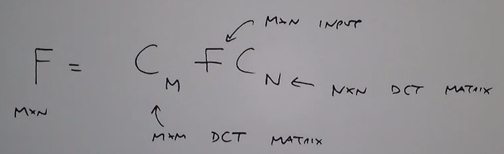 MXN INPUT
F = C_M F C_N ← NXN DCT MATRIX
MXN
MXM DCT MATRIX